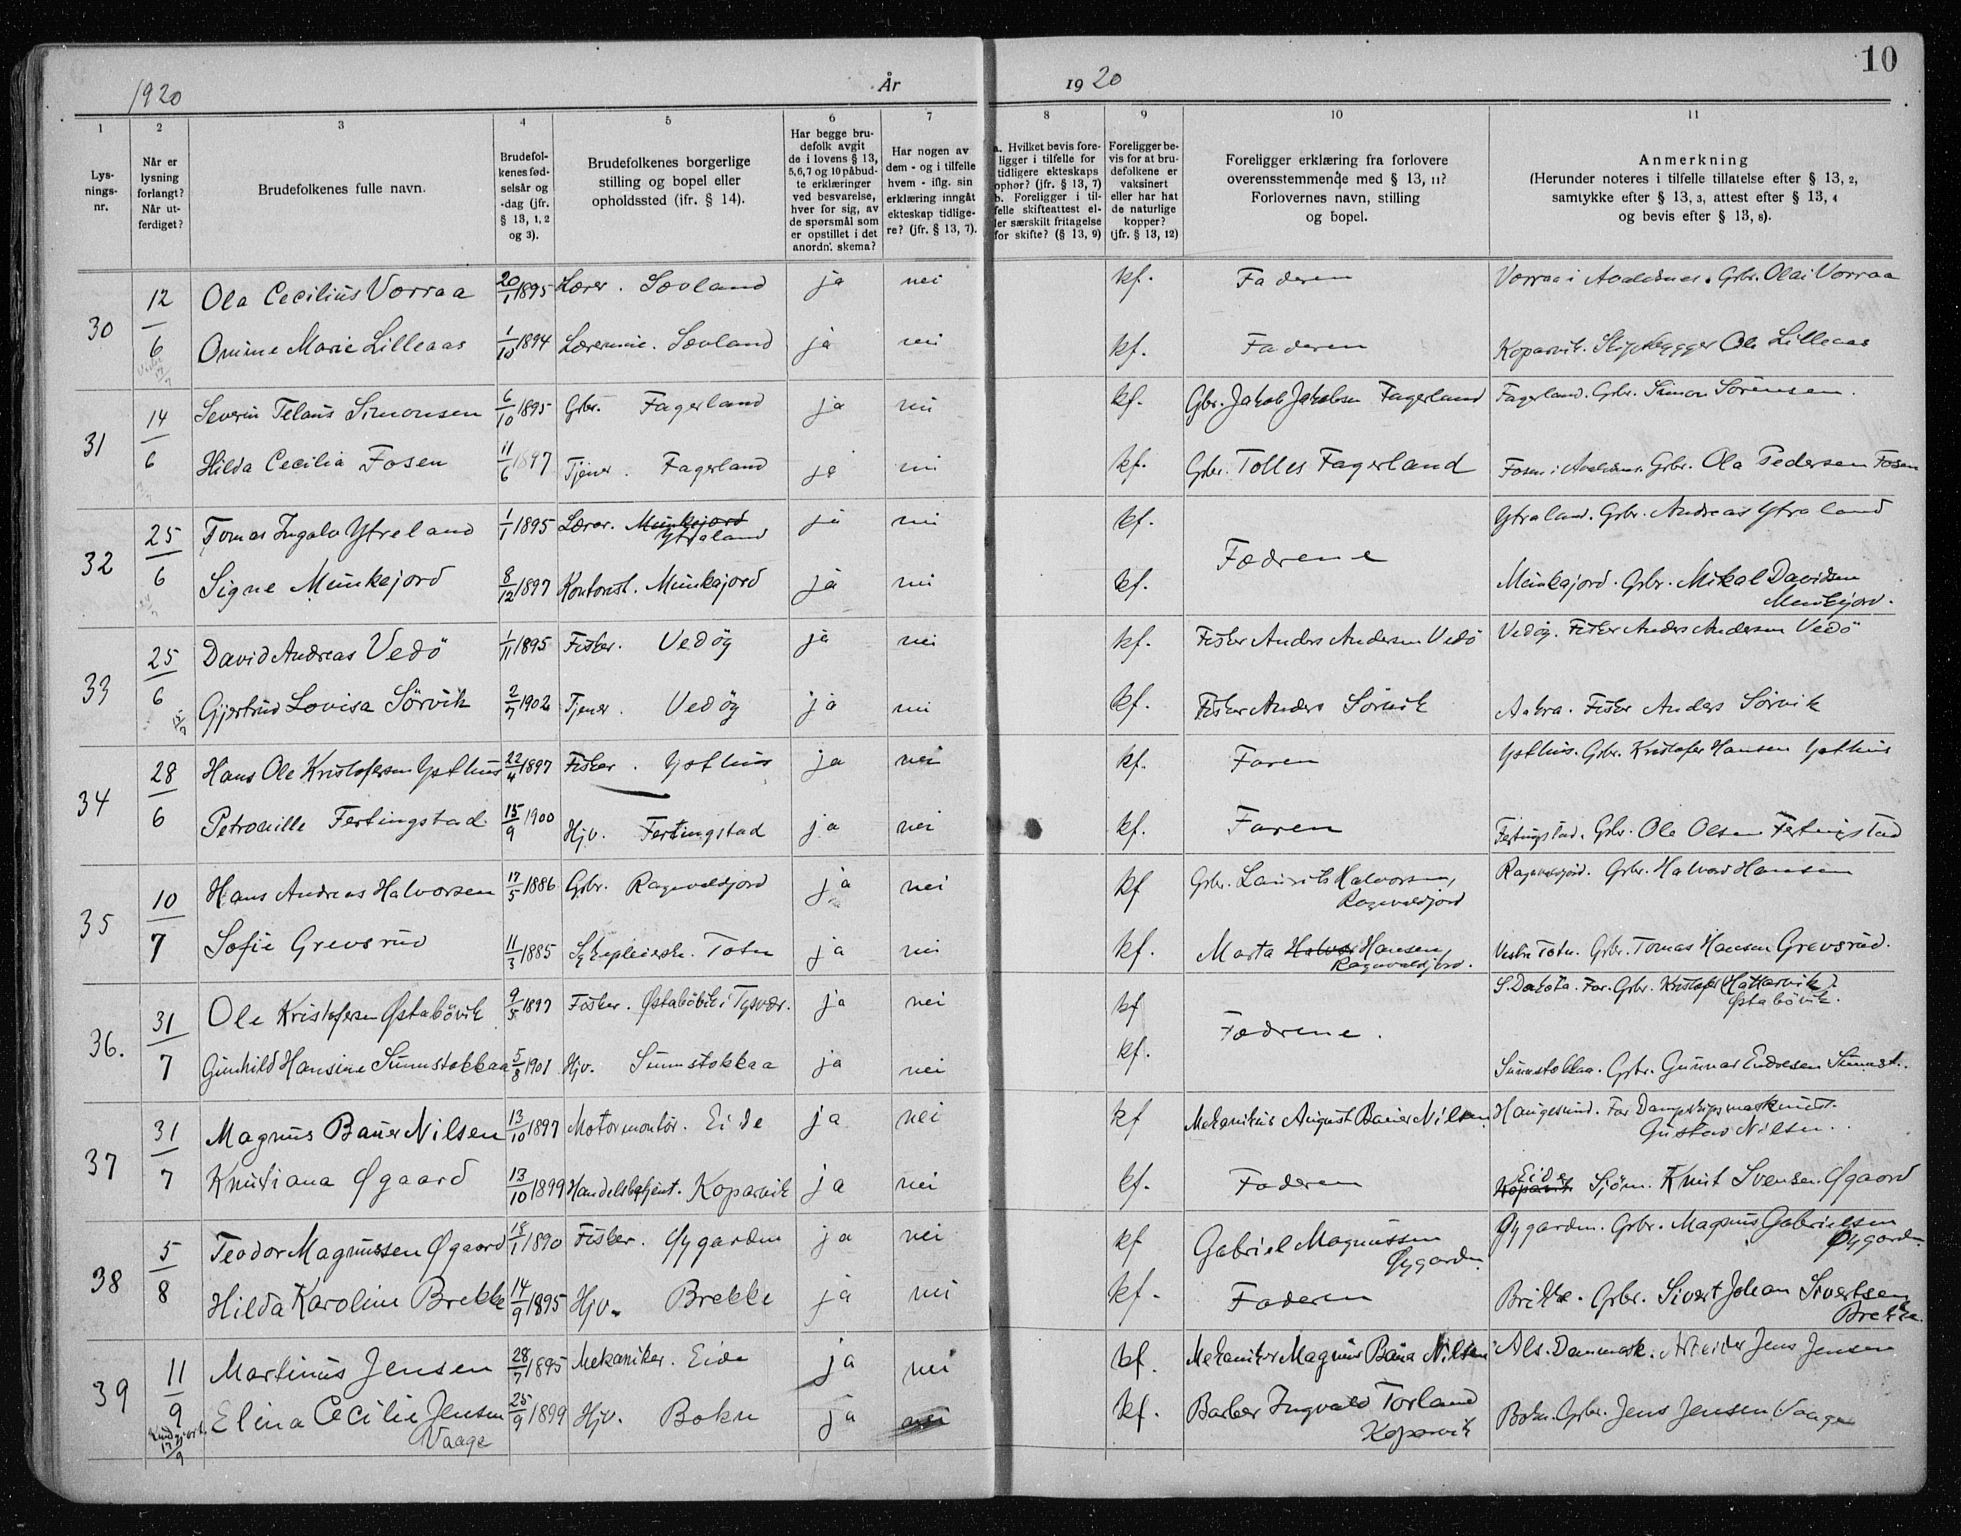 10
1920 År 1920
1 2 3 4 5 6 7 8 9 10 11
Lysnings-nr.
Når er lysning forlangt? Når utferdiget?
Brudefolkenes fulle navn.
Brudefolkenes fødselsår og -dag (jfr. § 13, 1, 2 og 3).
Brudefolkenes borgerlige stilling og bopel eller opholdssted (jfr. § 14).
Har begge brudefolk avgit de i lovens § 13, 5,6,7 og 10 påbudte erklæringer ved besvarelse, hver for sig, av de spørsmål som er opstillet i det anordn. skema?
Har nogen av dem - og i tilfelle hvem - iflg. sin erklæring inngåt ekteskap tidligere? (jfr. § 13, 7).
a. Hvilket bevis foreligger i tilfelle for tidligere ekteskaps ophør? (jfr. § 13, 7) b. Foreligger i tilfelle skifteattest eller særskilt fritagelse for skifte? (§ 13, 9)
Foreligger bevis for at brudefolkene er vaksinert eller har hat de naturlige kopper? (jfr. § 13, 12)
Foreligger erklæring fra forlovere overensstemmende med § 13, 11? Forlovernes navn, stilling og bopel.
Anmerkning (Herunder noteres i tilfelle tillatelse efter § 13, 2, samtykke efter § 13, 3, attest efter § 13, 4 og bevis efter § 13, 8).
30 12/6 Ola Cecilius Vorraa 20/1 1895 Lærer. Sævland ja nei kf. Faderen Vorraa i Avaldsnes. Grbr. Olai Vorraa
Omine Marie Lilleaas 1/10 1894 Lærerinne. Sævland ja nei kf. Faderen Kopervik. Skipsbygger Ole Lilleaas
31 14/6 Severin Telaus Simonsen 6/10 1895 Grbr. Fagerland ja nei kf. Gbr. Jakob Jakobsen Fagerland Fagerland. Grbr. Simon Sørensen.
Hilda Cecilia Fosen 11/6 1897 Tjener. Fagerland ja nei kf. Grbr. Tolles Fagerland Fosen i Avaldsnes. Grbr. Ola Pedersen Fosen
32 25/6 Tomas Ingolv Ytreland 1/1 1895 Lærer. Munkejord Ytraland ja nei kf. Fædrene Ytraland. Grbr. Andreas Ytraland
Signe Munkejord 8/12 1897 Kontorist. Munkajord ja nei kf. Munkajord. Grbr. Mikal Davidsen Munkejord.
33 25/6 David Andreas Vedö 1/11 1895 Fisker. Vedöy ja nei kf. Fisker Anders Andersen Vedö Vedöy. Fisker Anders Andersen Vedö
15/7 Gjertrud Lovisa Sörvik 2/7 1902 Tjener. Vedöy ja nei kf. Fisker Anders Sörvik Aakra. Fisker Anders Sörvik
34 28/6 Hans Ole Kristofersen Ysthus 22/4 1897 Fisker. Ysthus ja nei kf. Faren Ysthus. Grbr. Kristofer Hansen Ysthus
Petronille Ferkingstad 15/9 1900 Hjv. Ferkingstad ja nei kf. Faren Ferkingstad. Grbr. Ole Olsen Ferkingstad
35 10/7 Hans Andreas Halvorsen 17/5 1886 Grbr. Ragnvaldjord ja nei kf Grbr. Laurits Halvorsen, Ragnvaldjord Ragnvaldjord. Grbr. Halvord Hansen
Sofie Grevsrud 11/3 1885 Sykepleierske. Toten ja nei kf. Marta Halvor Hansen, Ragnvaldjord. Vestre Toten. Grbr. Tomas Hansen Grevsrud.
36. 31/7 Ole Kristofersen Østabövik 9/5 1897 Fisker. Østabövik i Tysvær. ja nei kf Fædrene. S. Dakota. Far. Grbr. Kristofer (Hattarvik) Østabövik.
Gunhild Hansine Sunnstokkaa 5/8 1901 Hjv. Sunnstokkaa ja nei kf. Sunnstokkaa. Grbr. Gunnar Endresen Sunnst.
37 31/7 Magnus Bauer Nilsen 13/10 1897 Motormontör. Eide ja nei kf Mekanikus August Bauer Nilsen. Haugesund. Far Dampskipsmaskinist. Gustav Nilsen.
Kristiana Øgaard 13/10 1899 Handelsbetjent. Kopervik ja nei kf. Faderen Kopervik Eide Sjöm. Knut Svensen Øgaard
38 5/8 Teodor Magnussen Øgaard 18/1 1890 Fisker. Øygarden ja nei kf Gabriel Magnussen Øygarden. Øygarden. Grbr. Magnus Gabrielsen Øygarden.
Hilda Karoline Brekke 14/9 1895 Hjv. Brekke ja nei kf. Faderen Brekke. Grbr. Sivert Johan Sivertsen Brekke.
39 11/9 Martinus Jensen 28/7 1895 Mekaniker. Eide ja nei kf. Mekaniker Magnus Bauer Nilsen Als. Danmark. Arbeider Jens Jensen
17/9 Elina Cecilie Jensen Vaage 25/9 1899 Hjv. Bokn ja nei kf. Barber Ingvald Torland Kopervik Bokn. Grbr. Jens Jensen Vaage